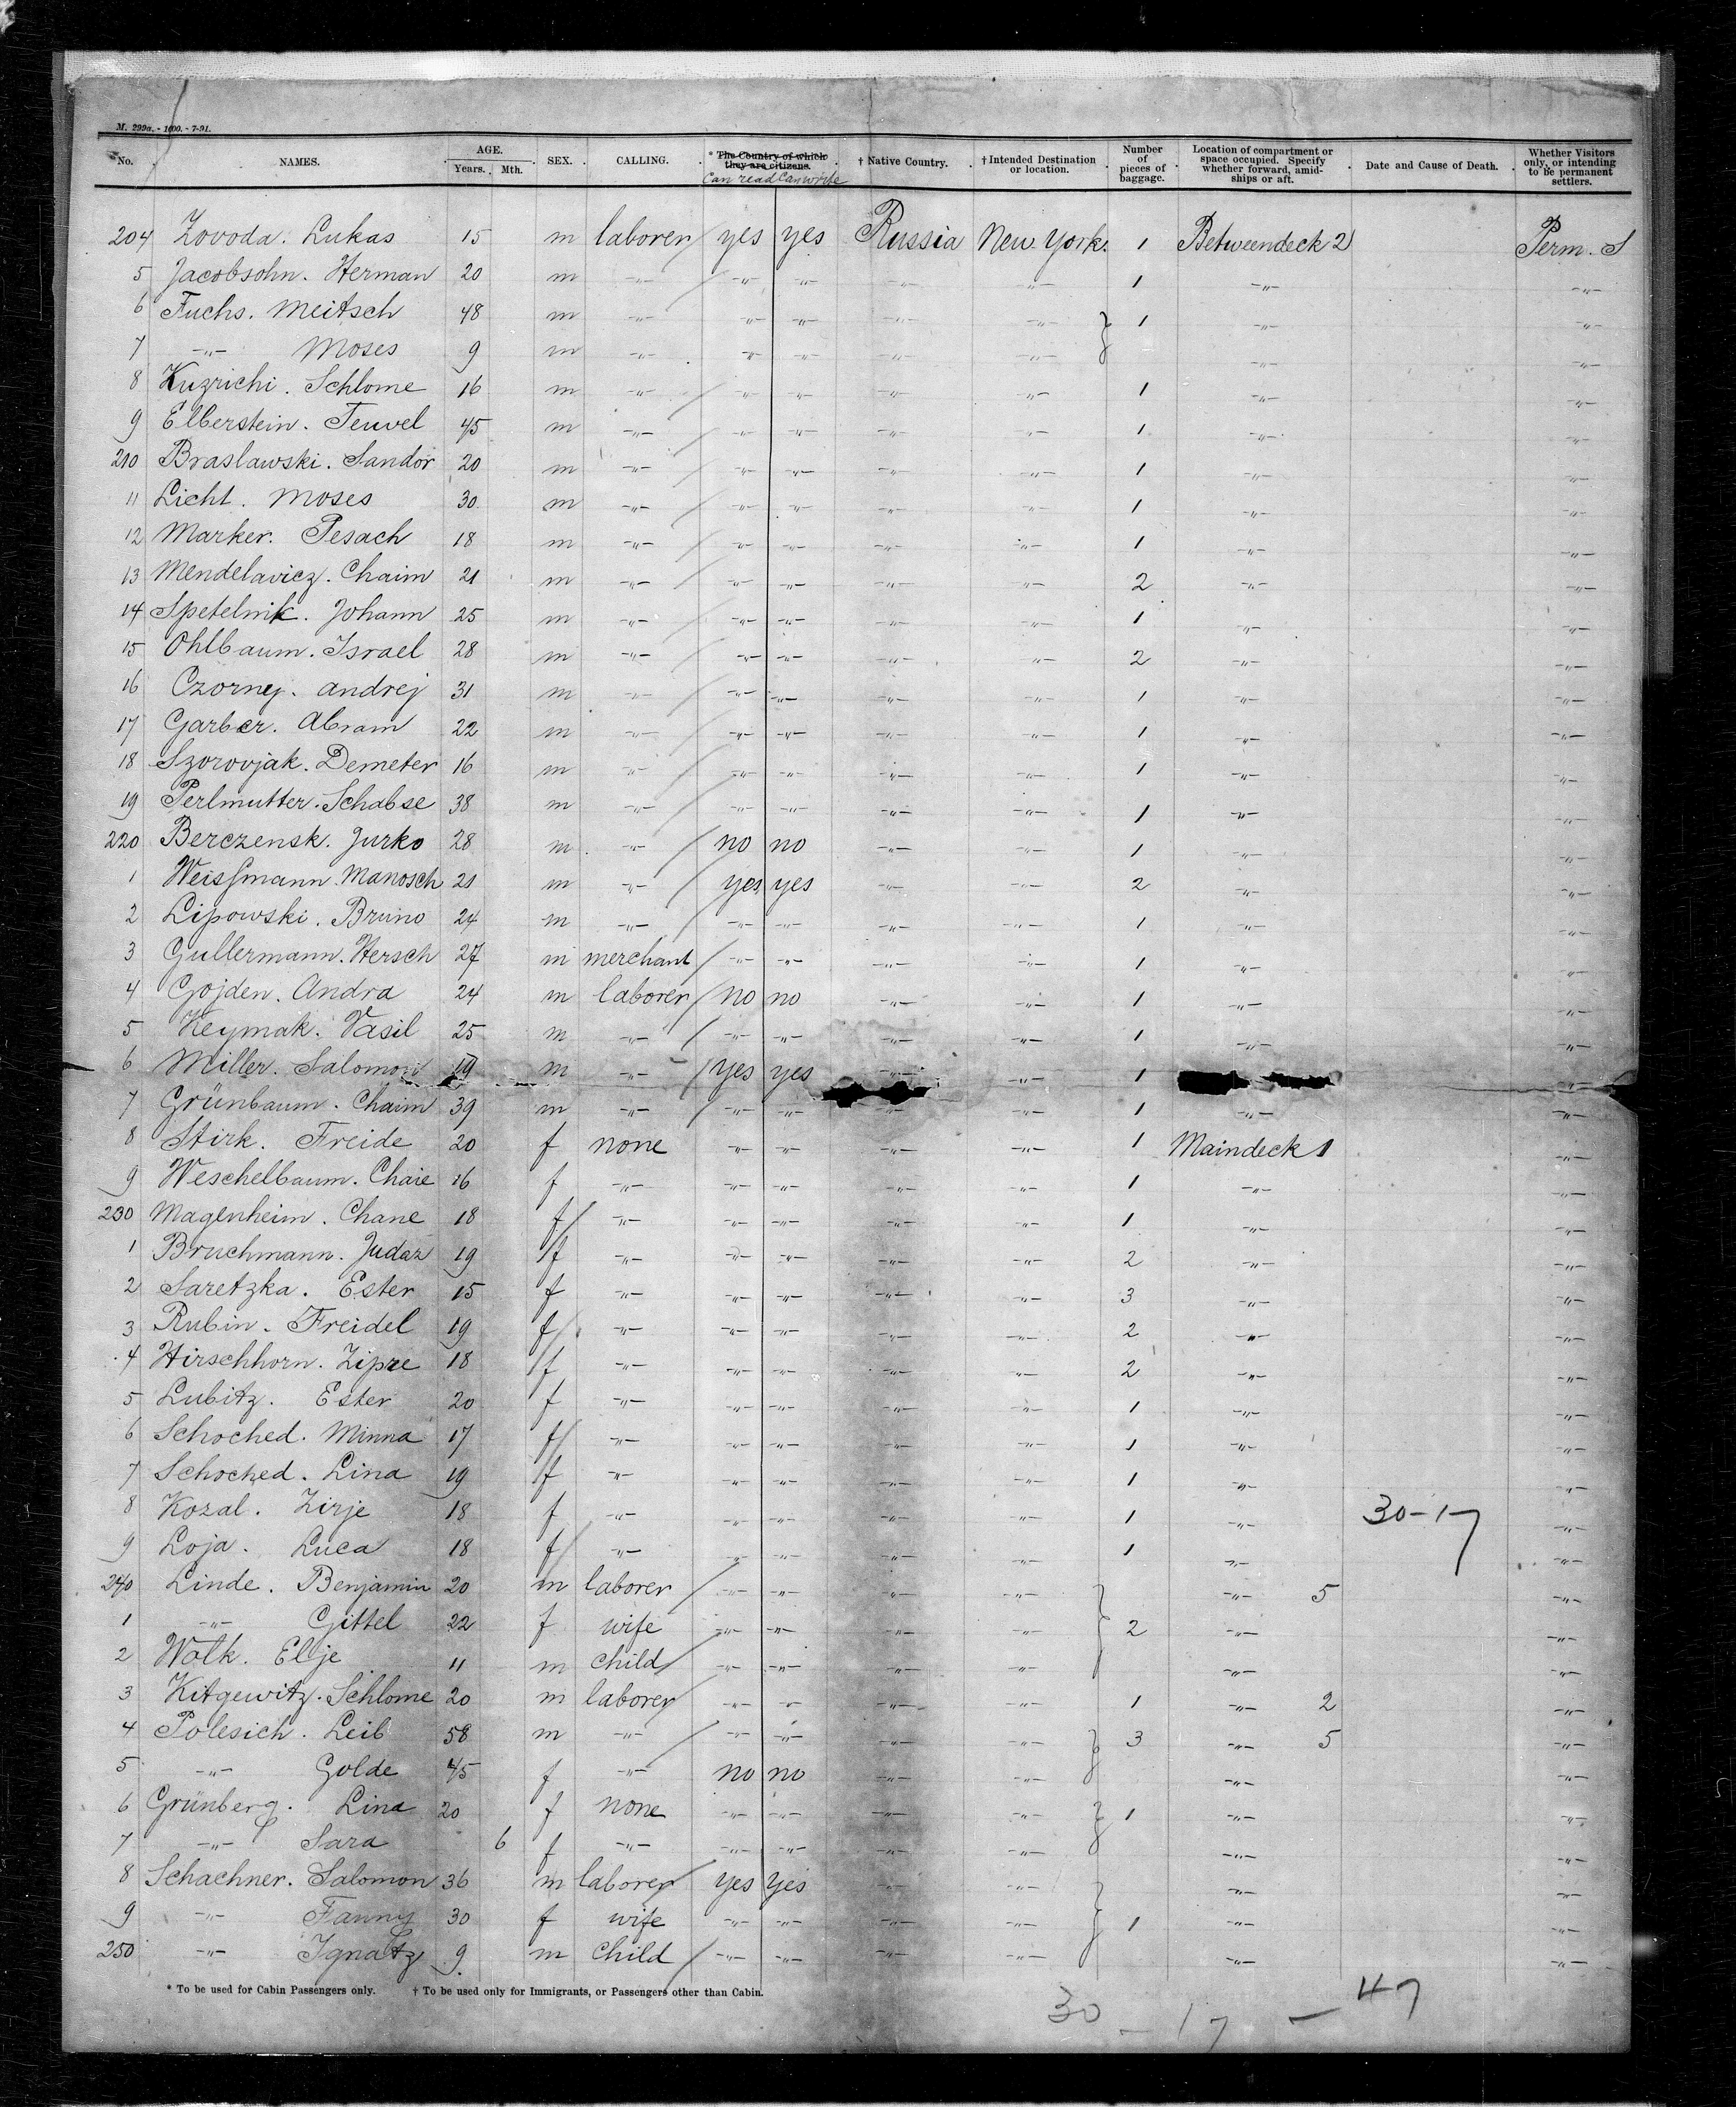 M. 299a. - 1000. - 7-91.
No. NAMES. AGE. Years. Mth. SEX. CALLING. * The Country of which they are citizens. Can read Can write † Native Country. † Intended Destination or location. Number of pieces of baggage. Location of compartment or space occupied. Specify whether forward, amidships or aft. Date and Cause of Death. Whether Visitors only, or intending to be permanent settlers.
204 Zovoda. Lukas 15 m laborer yes yes Russia New York. 1 Betweendeck 2 Perm. S
5 Jacobsohn. Herman 20 m -"- -"- -"- -"- -"- 1 -"- -"-
6 Fuchs. Meitsch 48 m -"- -"- -"- -"- -"- } 1 -"- -"-
7 -"- Moses 9 m -"- -"- -"- -"- -"- -"- -"-
8 Kuzrichi. Schlome 16 m -"- -"- -"- -"- -"- 1 -"- -"-
9 Elberstein. Teuvel 45 m -"- -"- -"- -"- -"- 1 -"- -"-
210 Braslawski. Sandor 20 m -"- -"- -"- -"- -"- 1 -"- -"-
11 Licht. Moses 30 m -"- -"- -"- -"- -"- 1 -"- -"-
12 Marker. Pesach 18 m -"- -"- -"- -"- -"- 1 -"- -"-
13 Mendelavicz. Chaim 21 m -"- -"- -"- -"- -"- 2 -"- -"-
14 Spetelnik. Johann 25 m -"- -"- -"- -"- -"- 1 -"- -"-
15 Ohlbaum. Israel 28 m -"- -"- -"- -"- -"- 2 -"- -"-
16 Czorny. Andrej 31 m -"- -"- -"- -"- -"- 1 -"- -"-
17 Garber. Abram 22 m -"- -"- -"- -"- -"- 1 -"- -"-
18 Szorovjak. Demeter 16 m -"- -"- -"- -"- -"- 1 -"- -"-
19 Perlmutter. Schabse 38 m -"- -"- -"- -"- -"- 1 -"- -"-
220 Berczensk. Jurko 28 m -"- no no -"- -"- 1 -"- -"-
1 Weissmann. Manosch 21 m -"- yes yes -"- -"- 2 -"- -"-
2 Lipowski. Bruno 24 m -"- -"- -"- -"- -"- 1 -"- -"-
3 Gullermann. Hersch 27 m merchant -"- -"- -"- -"- 1 -"- -"-
4 Gojden. Andra 24 m laborer no no -"- -"- 1 -"- -"-
5 Keymak. Vasil 25 m -"- -"- -"- -"- -"- 1 -"- -"-
6 Miller. Salomon 19 m -"- yes yes -"- -"- 1 -"-
7 Grünbaum. Chaim 39 m -"- -"- -"- -"- -"- 1 -"- -"-
8 Stirk. Freide 20 f none -"- -"- -"- -"- 1 Maindeck 1 -"-
9 Weschelbaum. Chaie 16 f -"- -"- -"- -"- -"- 1 -"- -"-
230 Magenheim. Chane 18 f -"- -"- -"- -"- -"- 1 -"- -"-
1 Bruchmann. Judaz 19 f -"- -"- -"- -"- -"- 2 -"- -"-
2 Saretzka. Ester 15 f -"- -"- -"- -"- -"- 3 -"- -"-
3 Rubin. Freidel 19 f -"- -"- -"- -"- -"- 2 -"- -"-
4 Hirschhorn. Zipre 18 f -"- -"- -"- -"- -"- 2 -"- -"-
5 Lubitz. Ester 20 f -"- -"- -"- -"- -"- 1 -"- -"-
6 Schoched. Minna 17 f -"- -"- -"- -"- -"- 1 -"- -"-
7 Schoched. Lina 19 f -"- -"- -"- -"- -"- 1 -"- -"-
8 Kozal. Zirje 18 f -"- -"- -"- -"- -"- 1 -"- 30-17 -"-
9 Loja. Luca 18 f -"- -"- -"- -"- -"- 1 -"- -"-
240 Linde. Benjamin 20 m laborer -"- -"- -"- -"- -"- 5 -"-
1 -"- Gittel 22 f wife -"- -"- -"- -"- } 2 -"- -"-
2 Wolk. Elje 11 m child -"- -"- -"- -"- -"- -"-
3 Kitgewitz. Schlome 20 m laborer -"- -"- -"- -"- 1 -"- 2 -"-
4 Polesich. Leib 58 m -"- -"- -"- -"- -"- } 3 -"- 5 -"-
5 -"- Golde 45 f -"- no no -"- -"- -"- -"-
6 Grünberg. Lina 20 f none -"- -"- -"- -"- } 1 -"- -"-
7 -"- Sara 6 f -"- -"- -"- -"- -"- -"- -"-
8 Schachner. Salomon 36 m laborer yes yes -"- -"- -"- -"-
9 -"- Fanny 30 f wife -"- -"- -"- -"- } 1 -"- -"-
250 -"- Ignatz 9 m child -"- -"- -"- -"- -"- -"-
* To be used for Cabin Passengers only. † To be used only for Immigrants, or Passengers other than Cabin.
30 - 17 - 47